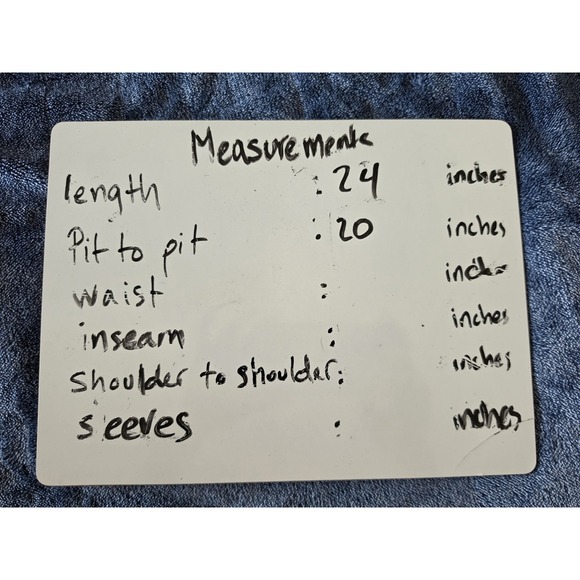 Measurements
length : 24 inches
Pit to pit : 20 inches
waist : inches
inseam : inches
shoulder to shoulder: inches
sleeves : inches